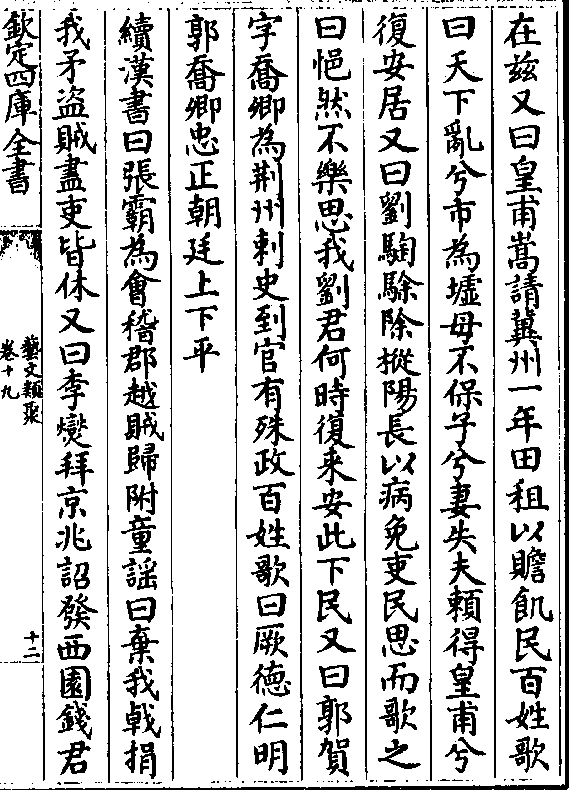 在茲又曰皇甫嵩請冀州一年田租以贍飢民百姓歌
曰天下亂兮市為墟母不保子兮妻失夫賴得皇甫兮
復安居又曰劉騊駼除樅陽長以病免吏民思而歌之
曰悒然不樂思我劉君何時復来安此下民又曰郭賀
字喬卿為荆州刺史到官有殊政百姓歌曰厥徳仁明
郭喬卿忠正朝廷上下平
續漢書曰張霸為會稽郡越賊歸附童謡曰棄我戟捐
我矛盗賊盡吏皆休又曰李燮拜京兆詔發西園錢君
欽定四庫全書
藝文類聚
卷十九
十二